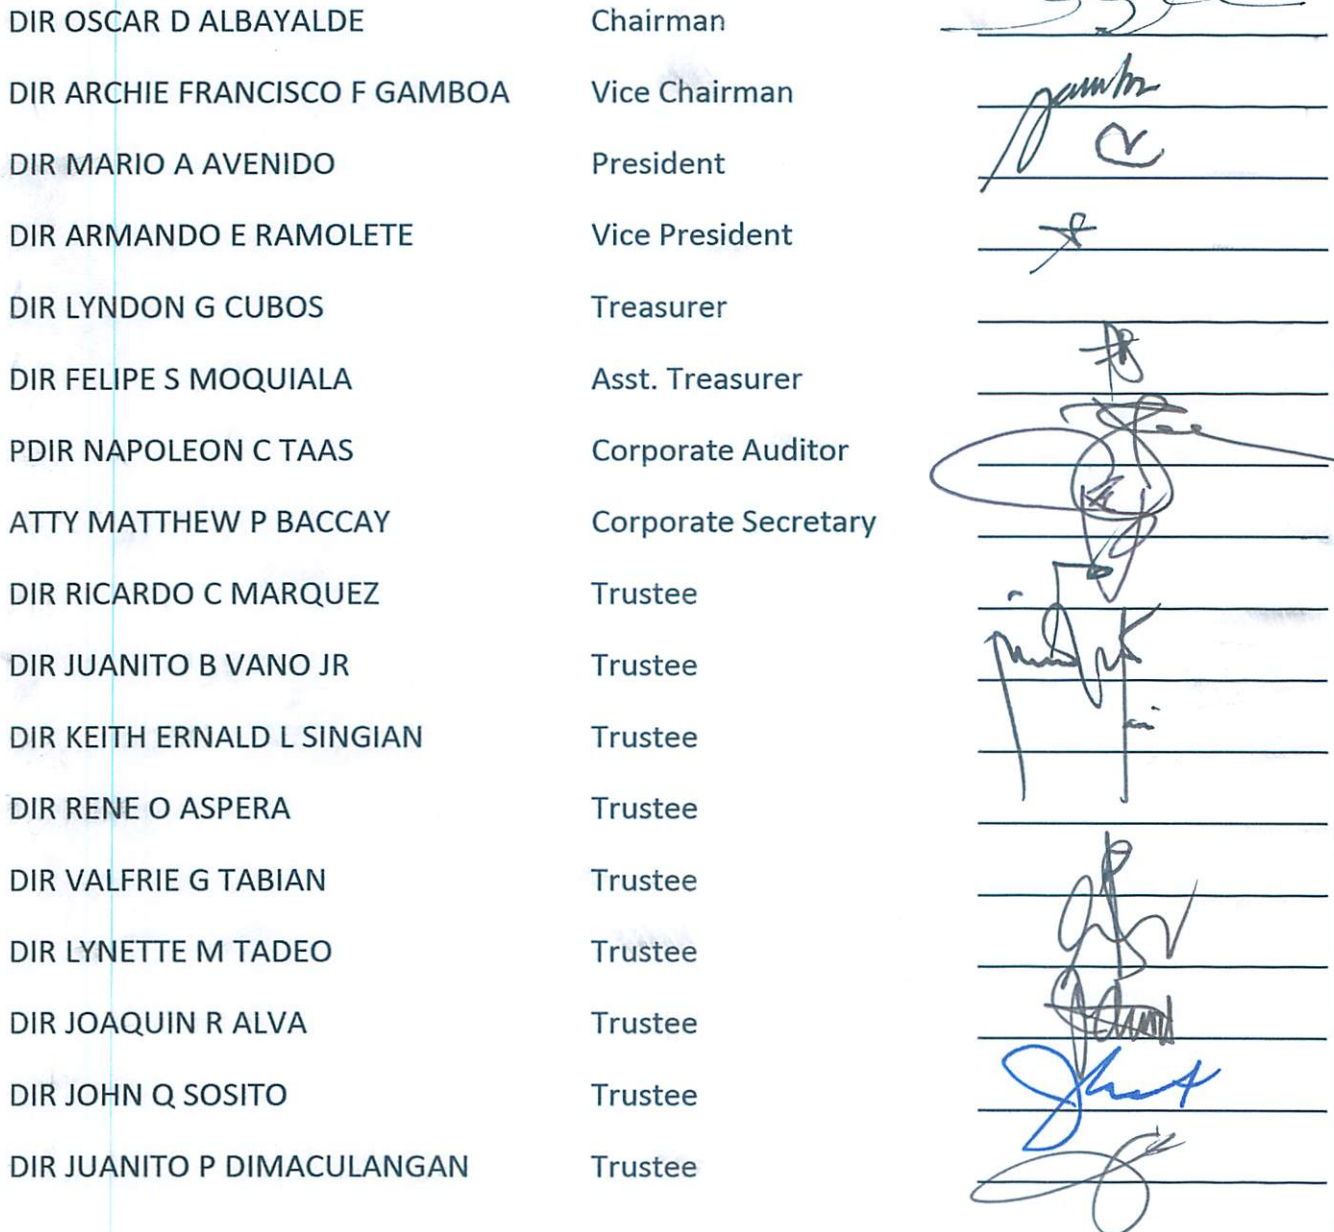 DIR OSCAR D ALBAYALDE Chairman
DIR ARCHIE FRANCISCO F GAMBOA Vice Chairman
DIR MARIO A AVENIDO President
DIR ARMANDO E RAMOLETE Vice President
DIR LYNDON G CUBOS Treasurer
DIR FELIPE S MOQUIALA Asst. Treasurer
PDIR NAPOLEON C TAAS Corporate Auditor
ATTY MATTHEW P BACCAY Corporate Secretary
DIR RICARDO C MARQUEZ Trustee
DIR JUANITO B VANO JR Trustee
DIR KEITH ERNALD L SINGIAN Trustee
DIR RENE O ASPERA Trustee
DIR VALFRIE G TABIAN Trustee
DIR LYNETTE M TADEO Trustee
DIR JOAQUIN R ALVA Trustee
DIR JOHN Q SOSITO Trustee
DIR JUANITO P DIMACULANGAN Trustee